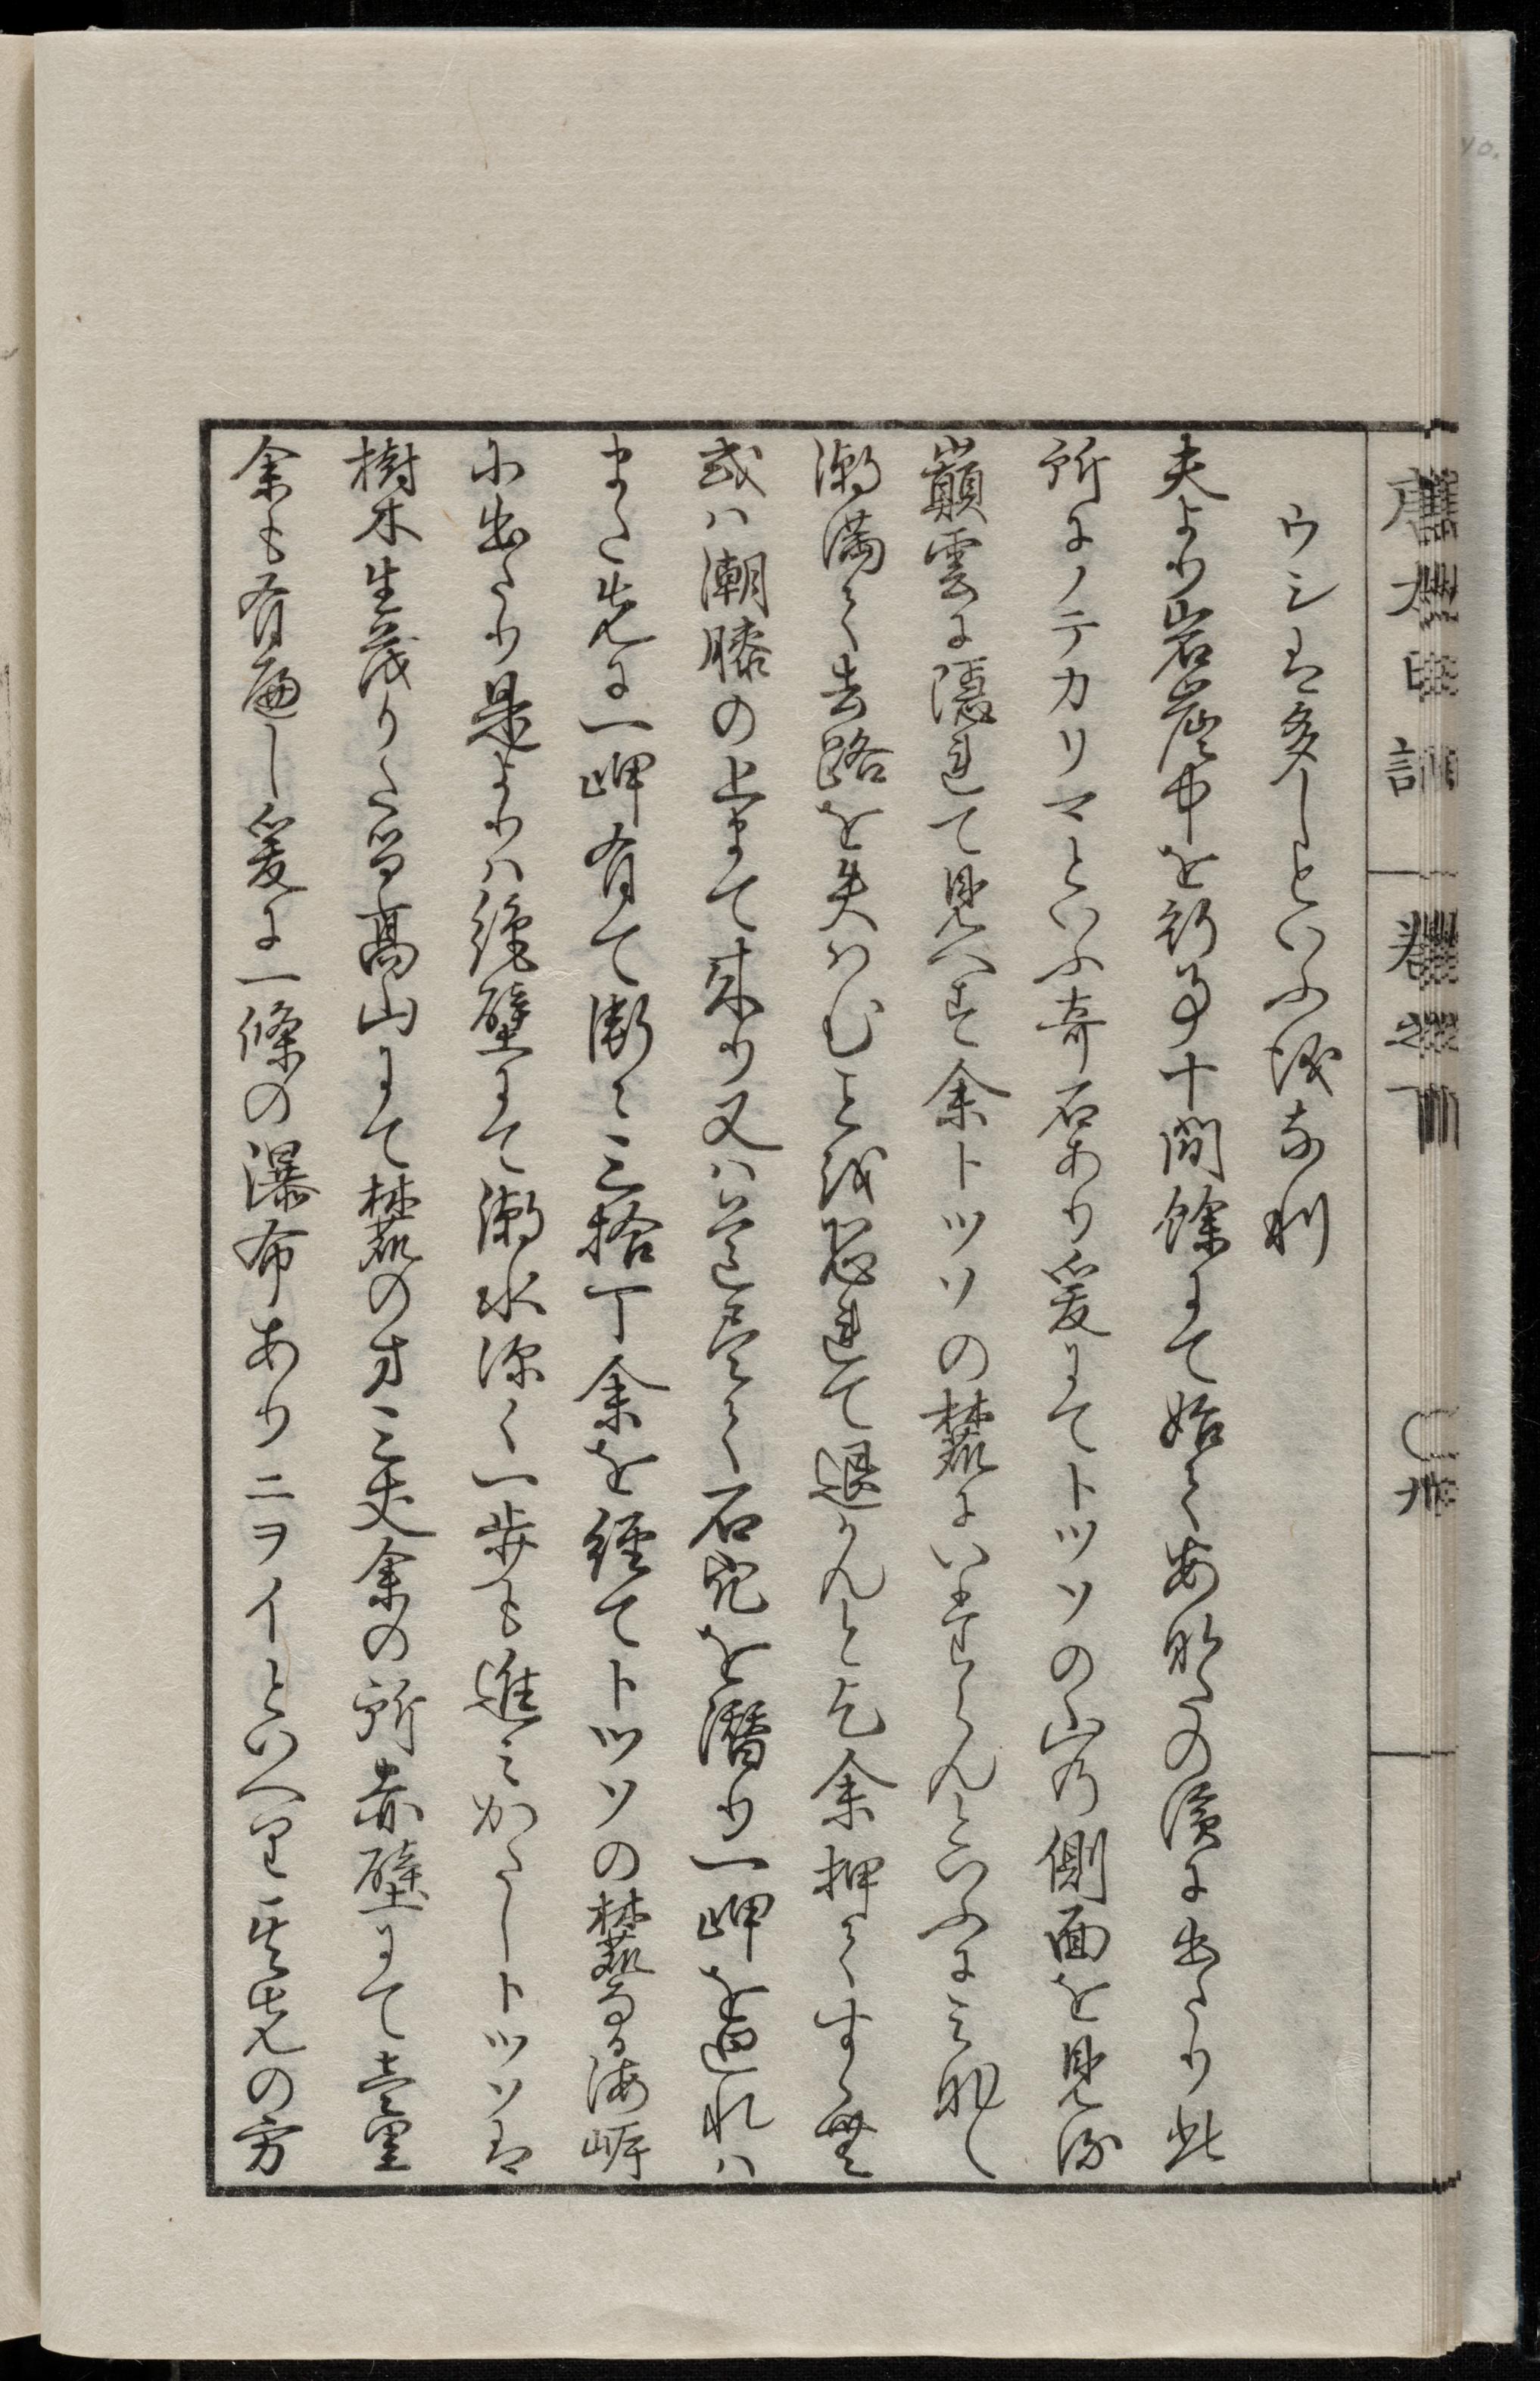 唐太日記　巻之下　〇九
ウシは多しといふ議な利
夫より岩崖中を行事十間餘にて始てあ那たの濱に出たり此
所にノテカリマといふ奇石あり爰にてトツソの山の側面を見る
巓雲に隠れて見へす余トツソの麓にいたらんといふに三郎
潮満て去路を失はむ事を恐れて退かんと乞余押てすゝむ
或ハ潮膝の上まて来り又ハ道尽て石穴を潜り一岬を過れハ
また先に一岬有て漸々三拾丁余を経てトツソの麓なる海岬
に出たり是よりハ絶壁にて潮水深く一歩も進みかたしトツソは
樹木生茂りたる高山にて麓の方三丈余の所赤壁にて壹里
余も有へし爰に一條の瀑布ありニヲイといへり其先の方